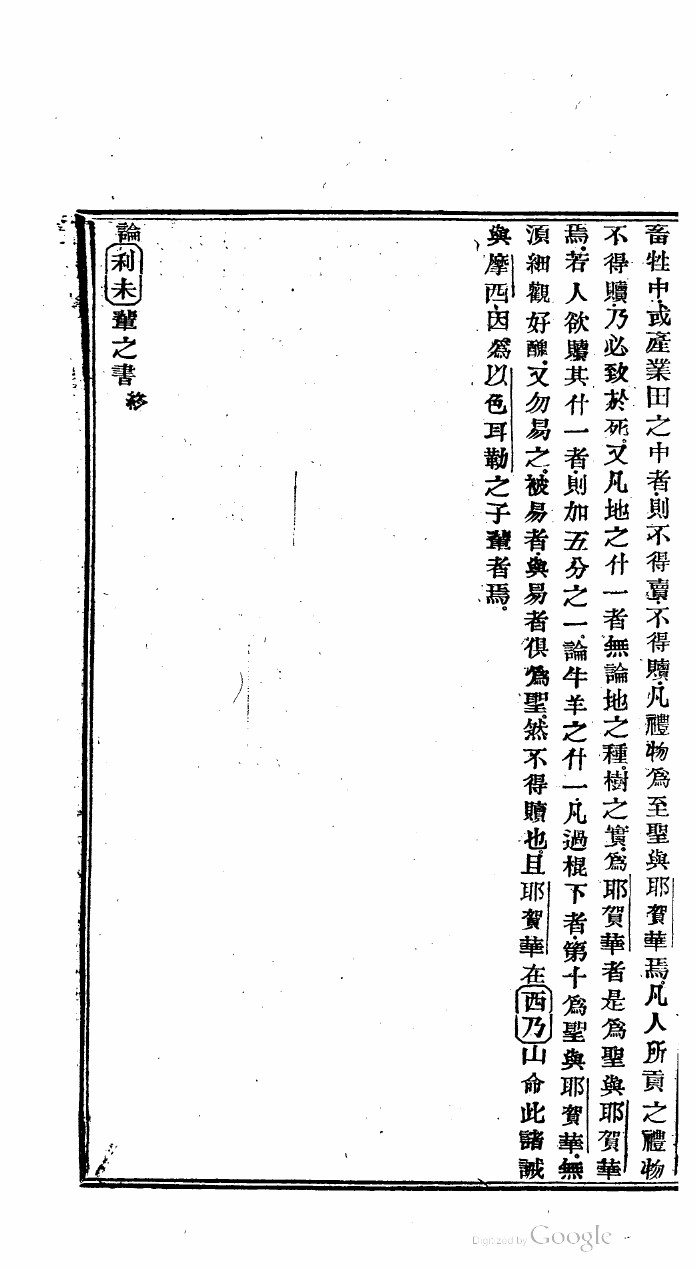 畜牲中，或產業田之中者，則不得賣，不得贖，凡禮物爲至聖與耶賀華焉，凡人所貢之禮物
不得贖，乃必致於死。又凡地之什一者，無論地之種，樹之實，爲耶賀華者，是爲聖與耶賀華
焉，若人欲贖其什一者，則加五分之一。論牛羊之什一，凡過棍下者，第十爲聖與耶賀華，無
須細觀好醜，又勿易之。被易者，與易者俱爲聖，然不得贖也。且耶賀華在西乃山命此諸誡
與摩西，因爲以色耳勒之子輩者焉。
論利未輩之書終
Digitized by Google